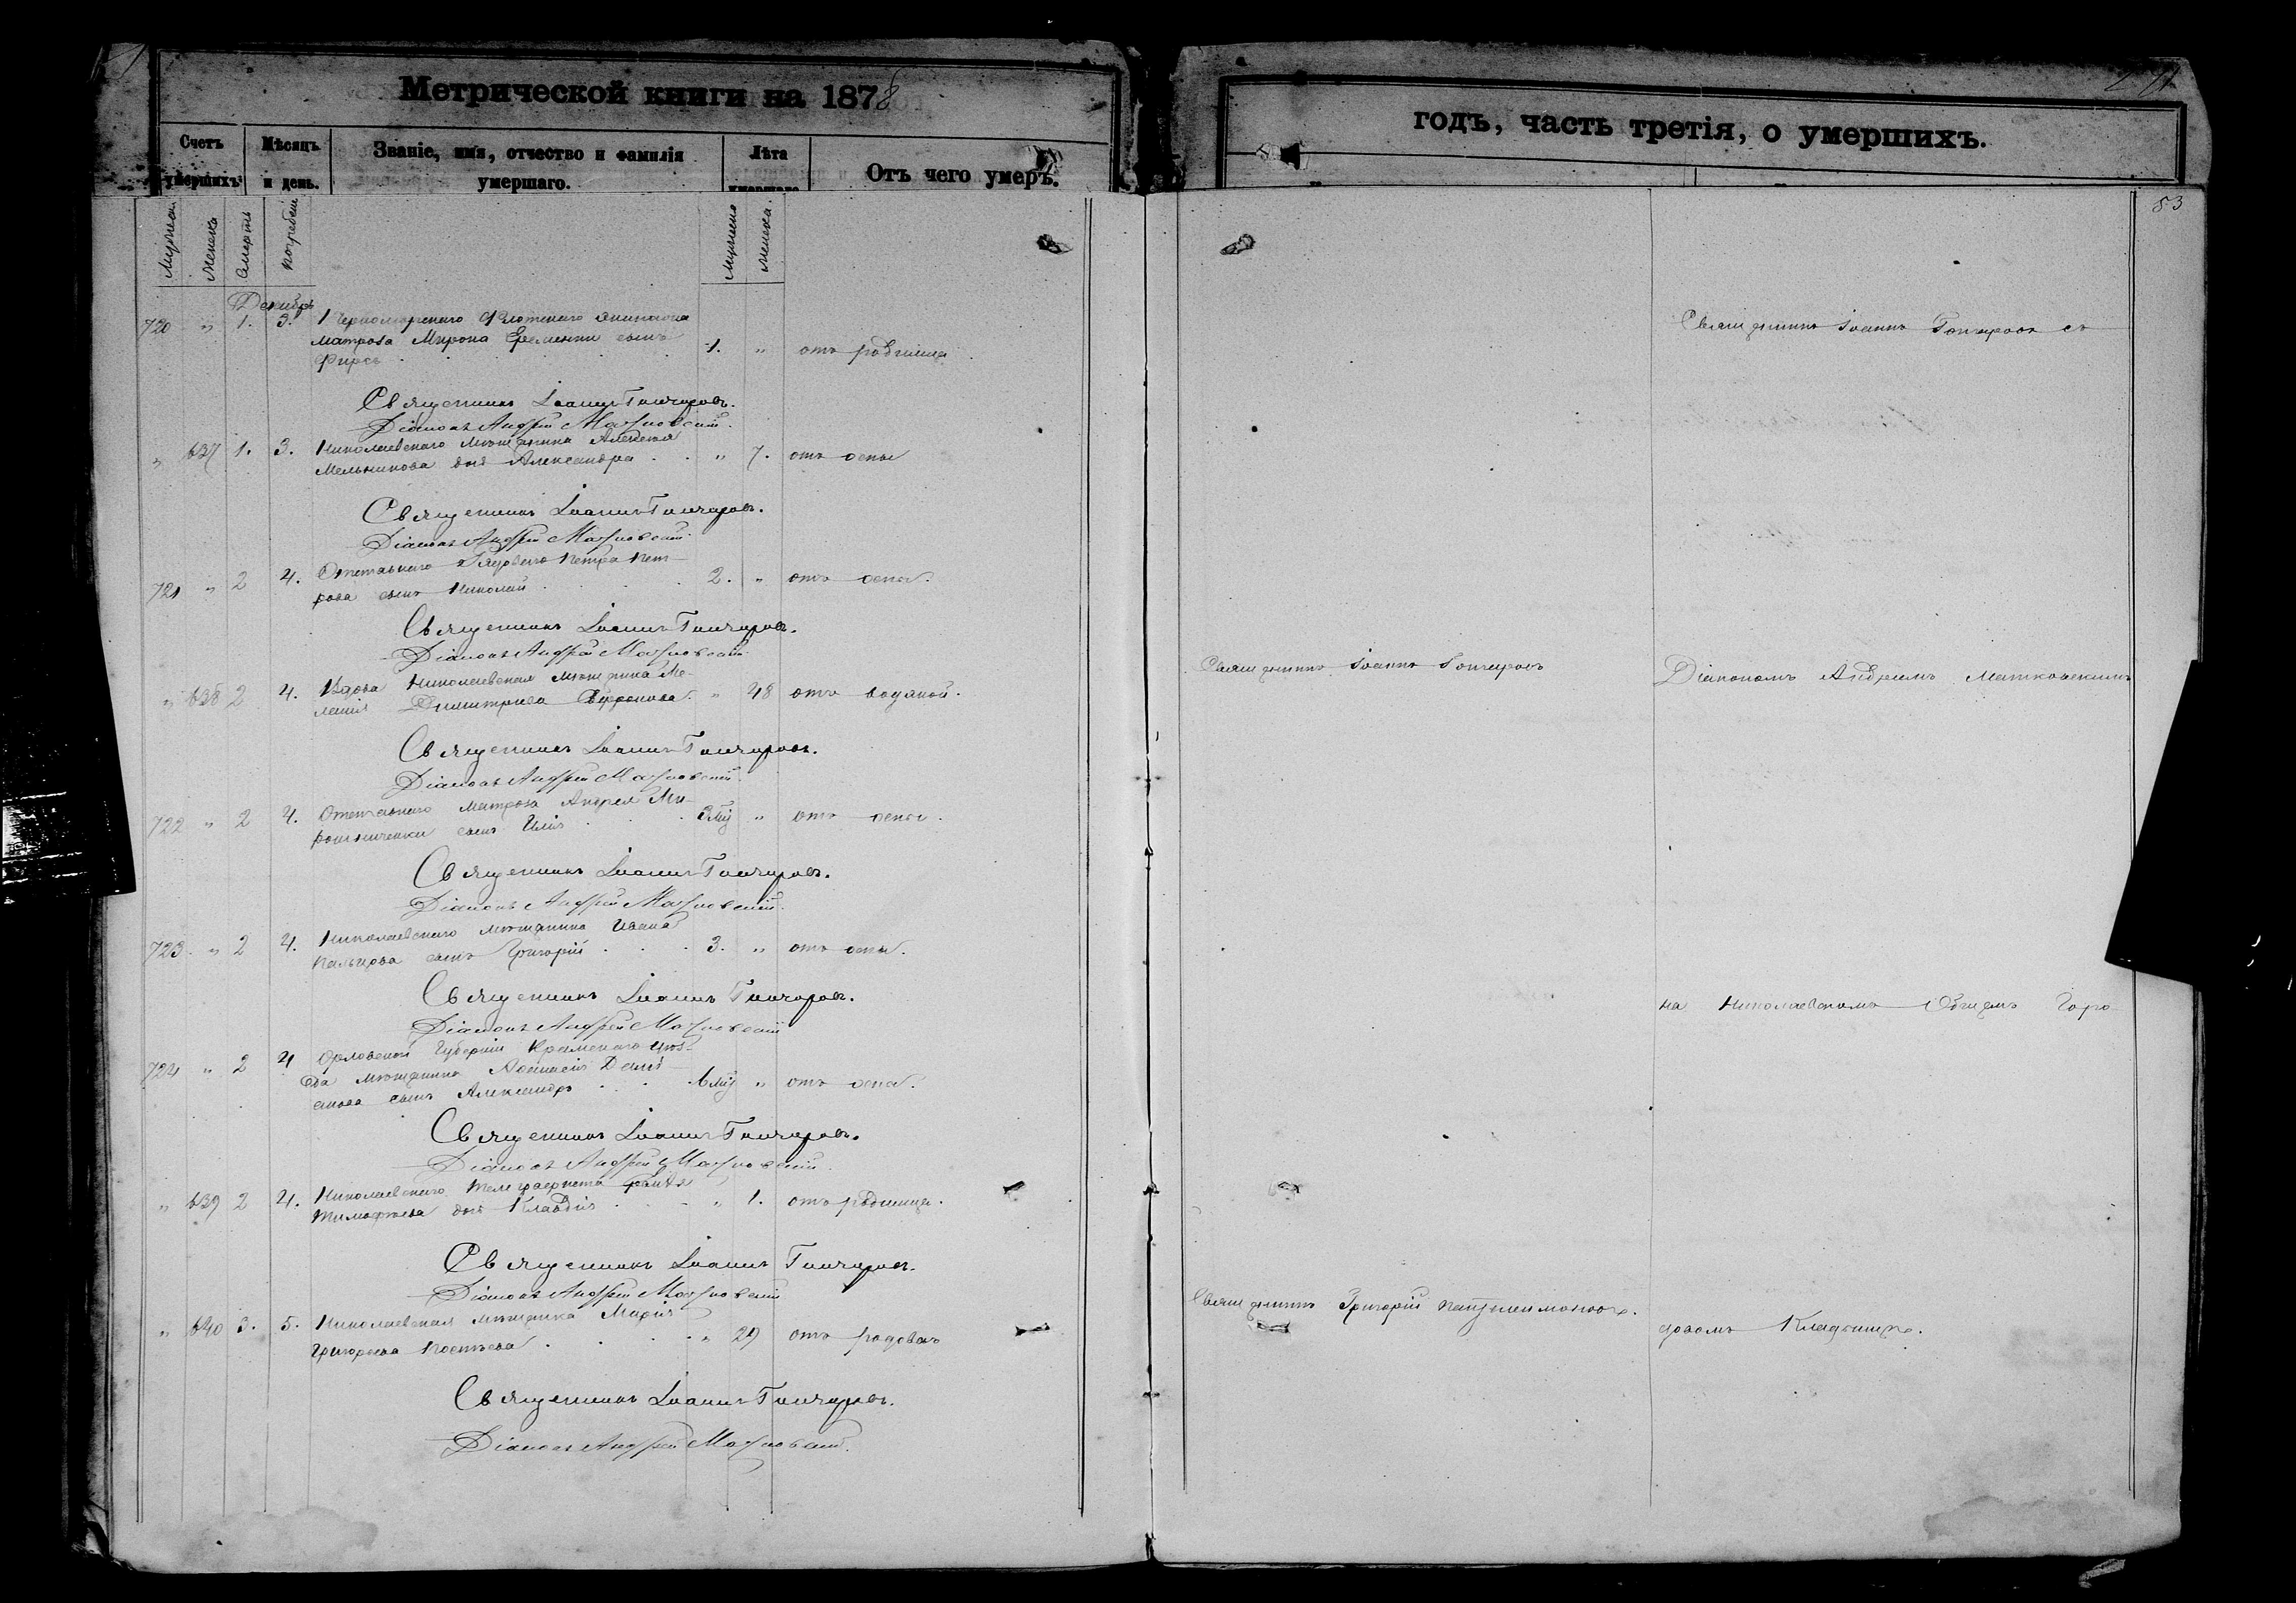 Метрической книги на 1878
Счетъ умершихъ
Мѣсяцъ и день.
Званіе, имя, отчество и фамилія умершаго.
Лѣта умершаго
Отъ чего умеръ.
мужеска
женска
смерть
погребен
мужеска
женска
Декабрь
720 " 1. 3. Черноморскаго Флотскаго Экипажа
матроса Мирона Еременки сынъ
Фирсъ 1. " отъ родимца
Священникъ Іоаннъ Гончаровъ.
Діаконъ Андрей Матковскій.
" 637 1. 3. Николаевскаго мѣщанина Алексѣя
Мельникова дочь Александра " 7. отъ оспы
Священникъ Іоаннъ Гончаровъ.
Діаконъ Андрей Матковскій.
721 " 2 4. Отставнаго Рядоваго Петра Пет-
рова сынъ Николай 2. " отъ оспы.
Священникъ Іоаннъ Гончаровъ.
Діаконъ Андрей Матковскій.
" 638 2 4. Вдова Николаевская мѣщанка Ме-
ланія Димитріева " 48 отъ водяной.
Священникъ Іоаннъ Гончаровъ.
Діаконъ Андрей Матковскій.
722 " 2 4. Отставнаго матроса Андрея Ми-
рошниченки сынъ Илія " отъ оспы.
Священникъ Іоаннъ Гончаровъ.
Діаконъ Андрей Матковскій.
723 " 2 4. Николаевскаго мѣщанина Ивана
Пальцова сынъ Григорій 3. " отъ оспы.
Священникъ Іоаннъ Гончаровъ.
Діаконъ Андрей Матковскій
724 " 2 4 Орловской Губерніи Кромскаго уѣз-
да мѣщанина Аѳанасія
сынъ Александръ " отъ оспы.
Священникъ Іоаннъ Гончаровъ.
Діаконъ Андрей Матковскій.
" 639 2 4. Николаевскаго телеграфиста
Тимофѣева дочь Клавдія " 1. отъ родимца.
Священникъ Іоаннъ Гончаровъ.
Діаконъ Андрей Матковскій
" 640 3. 5. Николаевская мѣщанка Марія
Григорьева " 29 отъ родовъ
Священникъ Іоаннъ Гончаровъ.
Діаконъ Андрей Матковскій.
годъ, часть третія, о умершихъ.
53
Священникъ Іоаннъ Гончаровъ съ
Священникъ Іоаннъ Гончаровъ
Діакономъ Андреемъ Матковскимъ
на Николаевскомъ Общемъ Горо-
Священникъ Григорій
довомъ Кладбищѣ.